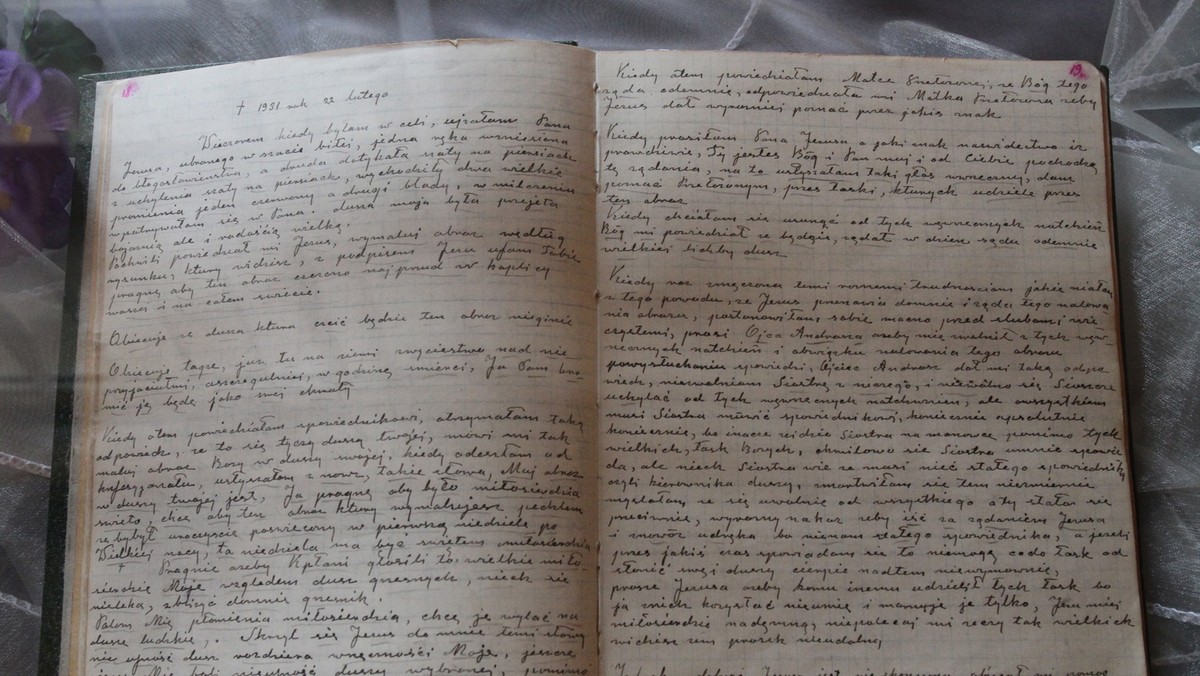 18.
† 1931 rok 22 lutego
Wieczorem kiedy byłam w celi, ujrzałam Pana
Jezusa, ubranego w szacie białej, jedna ręka wzniesiona
do błogosławieństwa, a druga dotykała szaty na piersiach
z uchylenia szaty na piersiach, wychodziły dwa wielkie
promienia jeden czerwony a drugi blady, w milczeniu
wpatrywałam się w Pana. dusza moja była przejęta
bojaźnią ale i radością wielką.
Po chwili powiedział mi Jezus, wymaluj obraz według
rysunku, który widzisz, z podpisem Jezu ufam Tobie
pragnę aby ten obraz czczono najprzód w kaplicy
waszej i na całem świecie.
Obiecuje ze dusza ktura czcić będzie ten obraz nieginie
Obiecuje także, już tu na ziemi zwycięstwo nad nie-
przyjaciółmi, a szczególniej, w godzinę śmierci, Ja Sam bro-
nić ją będę jako swej chwały
Kiedy o tem powiedziałam spowiednikowi, otrzymałam taką
odpowiedź, ze to się tyczy duszy twojej, mówi mi tak
maluj obraz Boży w duszy swojej, kiedy odeszłam od
konfesjonału, usłyszałam znowu, takie słowa, Muj obraz
w duszy twojej jest, Ja pragnę aby było miłosierdzia
święto, chcę aby ten obraz który wymalujesz pędzlem
ze by był uroczyście poświęcony w pierwszą niedzielę po
Wielkiej nocy, ta niedziela ma być świętem miłosierdzia
† Pragnie azeby Kpłani głosili to wielkie miło-
sierdzie Moje względem dusz grzesznych, niech się
nielęka, zbliżyć do mnie grzesznik.
Palom Mię płomienia miłosierdzia, chcę je wylać na
dusze ludzkie,. Skrzył się Jezus do mnie temi słowy
nie ufność dusz rozdziera wnęczności Moje, jeszcze
więcej Mię boli nieufność duszy wybranej, pomimo
19.
Kiedy otem powiedziałam Matce Przełozonej, ze Bóg tego
ząda odemnie, odpowiedziała mi Matka Przełozona zeby
Jezus dał wyraźniej poznać przez jakiś znak
Kiedy prosiłam Pana Jezusa, o jaki znak na świadectwo iż
prawdziwie, Ty jesteś Bóg i Pan muj i od Ciebie pochodzą
tę ządania, na to usłyszałam taki głos wewnęczny, dam
poznać Przełozonym, przez łaski, kturych udziele przez
ten obraz
Kiedy chciałam się usunąć od tych wewnęcznych natchnień
Bóg mi powiedział ze będzie, ządał w dzień sądu odemnie
wielkiej liczby dusz
Kiedy raz zmęczona temi roznemi trudnościami jakie miałam
z tego powodu, ze Jezus przemawia domnie i ząda tego malowa-
nia obrazu, postanowiłam, sobie mocno przed slubami wie-
czystemi, prosić Ojca Andrasza azeby mię zwolnił z tych wew-
nęcznych natchnień i obwiązku malowania tego obrazu
po wysłuchaniu spowiedzi, Ojciec Andrasz dał mi taką odpo-
wiedź, niezwalniam Siostrę z niczego, i niewolno się Siostrze
uchylać od tych wewnęcznych natchnieniem, ale owszystkiem
musi Siostra mówić spowiednikowi, koniecznie apsolutnie
koniecznie, bo inacze zejdzie Siostra na manowce pomimo tych
wielkich, łask Bozych, chwilowo się Siostra umnie spowia-
da, ale niech Siostra wie ze musi mieć stałego spowiednika
czyli kierownika duszy, zmartwiłam się tem niezmiernie
myslałam, ze się uwolnie od wszystkiego a ty stało się
przeciwnie, wyraźny nakaz zeby iść za ządaniem Jezusa
i znowóż udręka bo niemam stałego spowiednika, a jezeli
przez jakiś czas spowiadam się to niemogę co do łask od
słonić swej duszy cierpie nadtem niewymownie,
prosze Jezusa azeby komu inemu udzielił tych łask bo
ja znich kozystać nieumię i marnuje je tylko, Jezu miej
miłosierdzie nademną, niepolecaj mi rzeczy tak wielkich
widzisz zem prosek nieudolny,